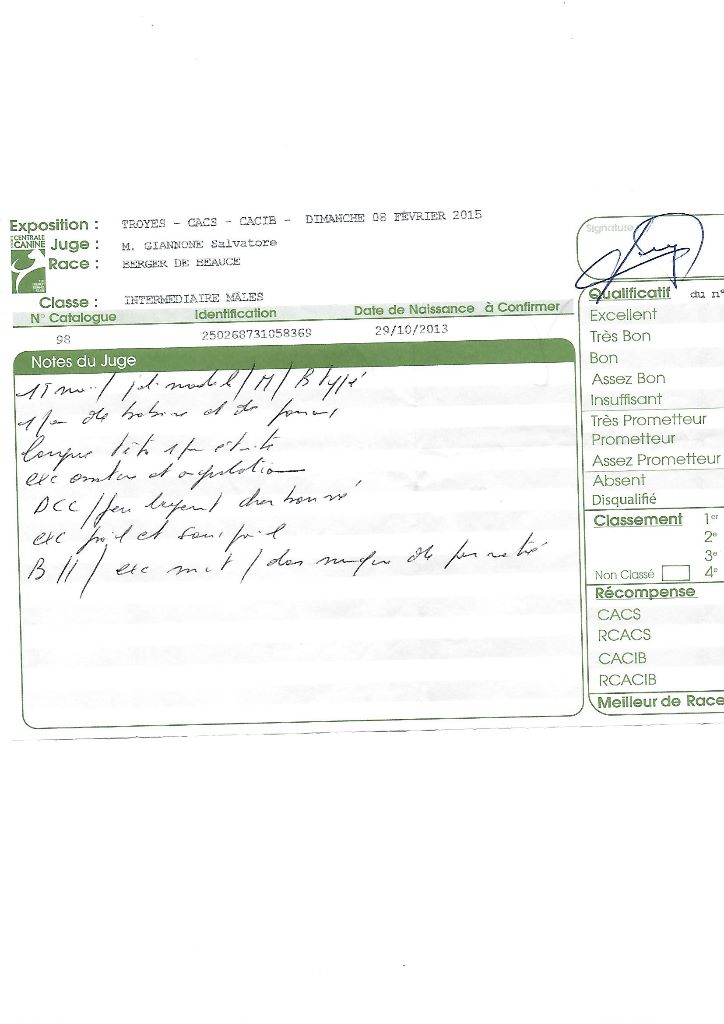 Exposition : TROYES - CACS - CACIB - DIMANCHE 08 FEVRIER 2015
CENTRALE CANINE
Juge : M. GIANNONE Salvatore
Race : BERGER DE BEAUCE
Classe : INTERMEDIAIRE MALES
N° Catalogue Identification Date de Naissance à Confirmer
98 250268731058369 29/10/2013
Notes du Juge
15 / joli model / M / B typé
1 peu de babine et de
longue tête 1 peu étroite
exc et angulation
DCC / feu charbonné
exc poil et sous poil
B // / exc / dos manque de fermeté
Signature
Qualificatif du n°
Excellent
Très Bon
Bon
Assez Bon
Insuffisant
Très Prometteur
Prometteur
Assez Prometteur
Absent
Disqualifié
Classement 1er
2e
3e
Non Classé 4e
Récompense
CACS
RCACS
CACIB
RCACIB
Meilleur de Race